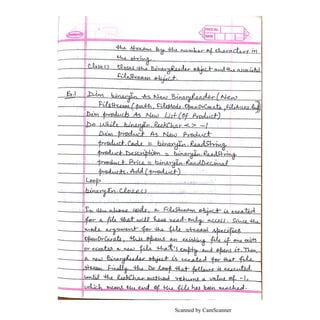 PAGE NO.
DATE
the stream by the number of characters in
the string.
Close() closes the BinaryReader object and the associated
FileStream object.
Ex:- Dim binaryIn As New BinaryReader (New
FileStream (path, FileMode.OpenOrCreate, FileAccess.Read))
Dim products As New List (Of Product)
Do While binaryIn.PeekChar <> -1
Dim product As New Product
product.Code = binaryIn.ReadString
product.Description = binaryIn.ReadString
product.Price = binaryIn.ReadDecimal
products.Add (product)
Loop
binaryIn.Close()
In the above code, a FileStream object is created
for a file that will have read-only access. Since the
mode argument for the file stream specifies
OpenOrCreate, this opens an existing file if one exists
or creates a new file that's empty and opens it. Then
a new BinaryReader object is created for that file
stream. Finally the Do loop that follows is executed
until the PeekChar method returns a value of -1,
which means the end of the file has been reached.
Scanned by CamScanner